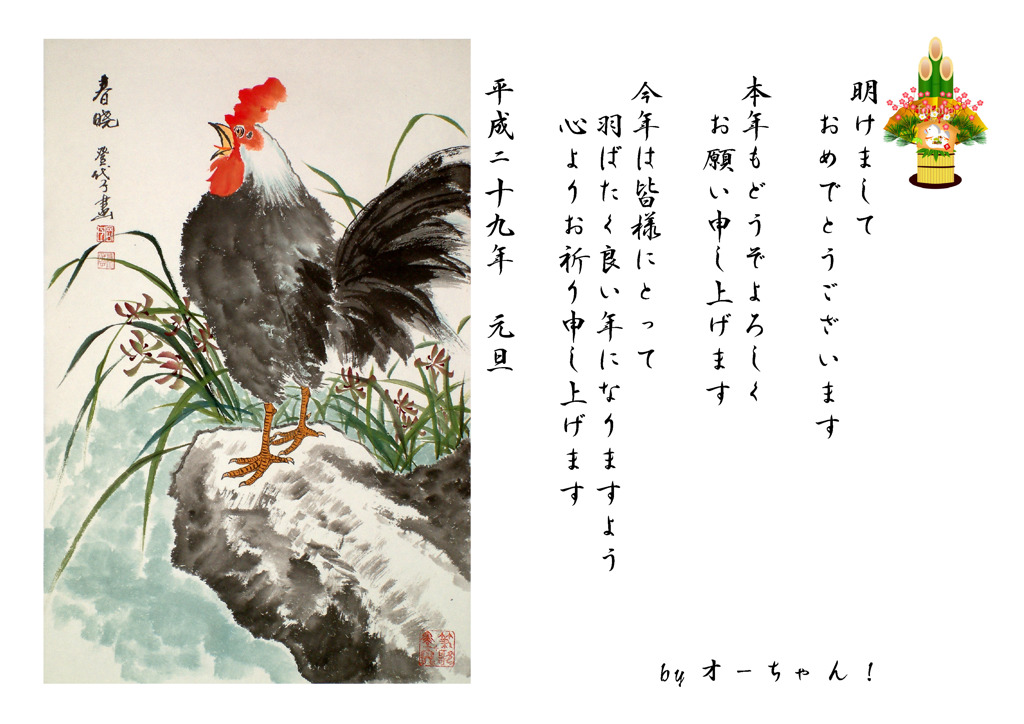 明けまして
おめでとうございます
本年もどうぞよろしく
お願い申し上げます
今年は皆様にとって
羽ばたく良い年になりますよう
心よりお祈り申し上げます
平成二十九年 元旦
春暁
登代子画
byオーちゃん!